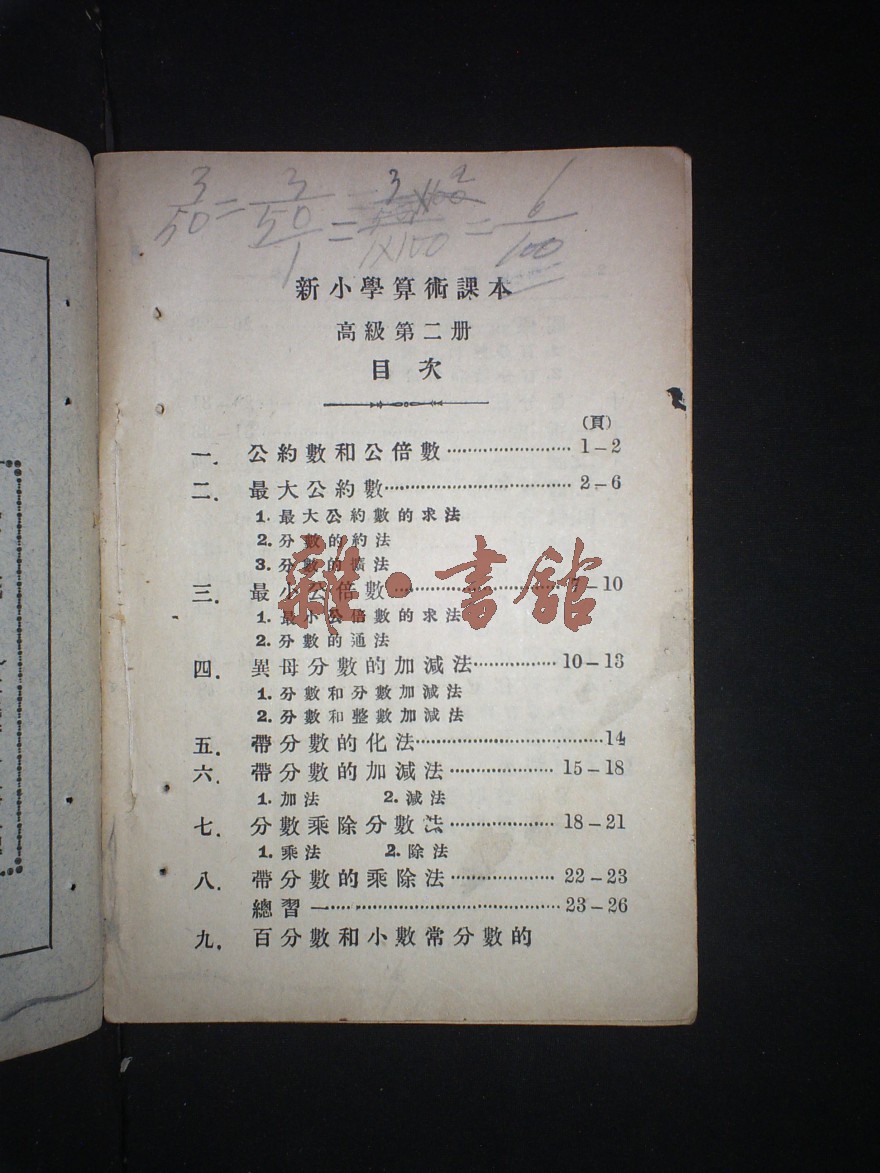 3/50 = 3/50/1 = 3/1×100 = 6/100
新小學算術課本
高級第二册
目次
(頁)
一. 公約數和公倍數……………………1–2
二. 最大公約數……………………………2–6
1. 最大公約數的求法
2. 分數的約法
3. 分數的擴法
三. 最小公倍數……………………………7–10
1. 最小公倍數的求法
2. 分數的通法
四. 異母分數的加減法……………10–13
1. 分數和分數加減法
2. 分數和整數加減法
五. 帶分數的化法……………………………14
六. 帶分數的加減法………………15–18
1. 加法 2. 減法
七. 分數乘除分數法………………18–21
1. 乘法 2. 除法
八. 帶分數的乘除法………………22–23
總習一…………………………………23–26
九. 百分數和小數常分數的
雜·書館